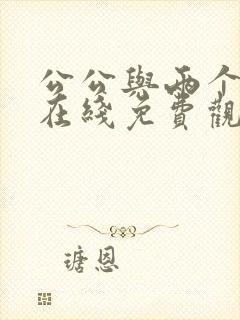 公公與兩个
在綫免費觀
瑭恩